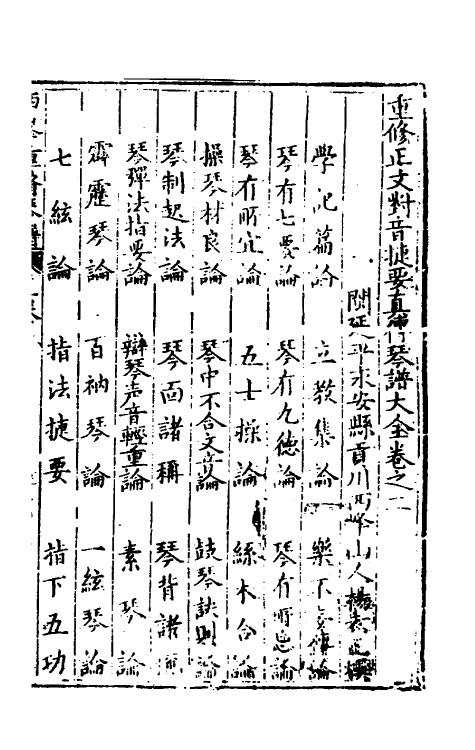 重修正文對音捷要真傳琴譜大全卷之二
閩延平永安縣貢川西峰山人楊表正撰
學記篇論 立教集論 樂不妄傳論
琴有七要論 琴有九德論 琴有所忌論
琴有所宜論 五士操論 絲木合論
操琴材良論 琴中不合文音論 鼓琴訣則論
琴制起法論 琴面諸稱 琴背諸
琴彈法指要論 辯琴声音輕重論 素琴論
霹靂琴論 百衲琴論 一絃琴論
七絃論 指法捷要 指下五功